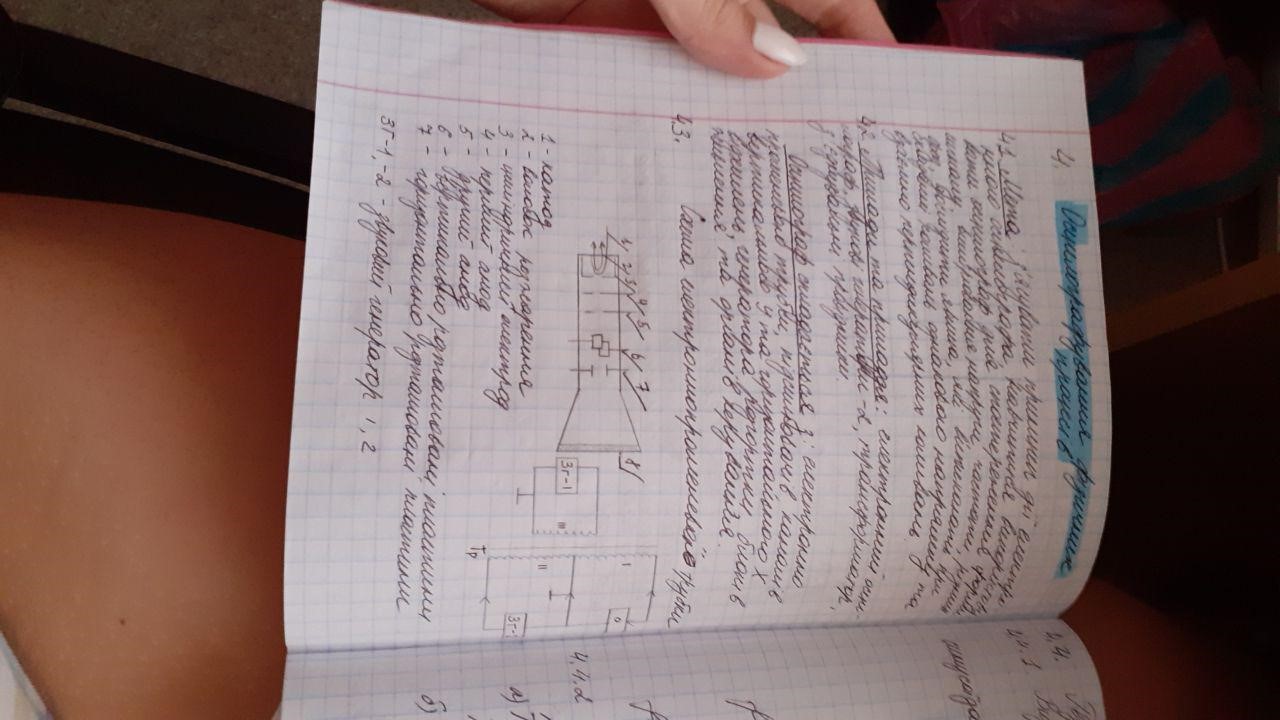 4. Осцилографування фізичних
процесів
4.1 Мета: з'ясувати принципи дії електро-
нного осцилографа, навчитися використову-
вати осцилограф для спостереження форми
сигналу, вимірювання напруги, частоти, різниці
фаз, дослідити явища, які виникають при
складанні коливань однакового напрямку та
взаємно перпендикулярних коливань.
4.2 Прилади та приладдя: електронний осци-
лограф, звукові генератори -2, трансформатор,
з'єднувальні провідники.
Осцилограф складається з: електронно
променевої трубки, підсилювачів, каналів
вертикального У та горизонтального Х
відхилень, генератора розгортки, блоків
живлення та органів керування.
4.3. Схема електроннопроменевої трубки
1 2 3 4 5 6 7 8
I
0
Зг-1
III
II
Зг-
Тр
1 - катод
2 - волосок розжарення
3 - циліндричний електрод
4 - перший анод
5 - другий анод
6 - вертикально розташовані пластини
7 - горизонтально розташовані пластини
Зг-1,-2 - звуковий генератор 1, 2
4.4.
4.4.1.
синусоїда
4.4.2
а)
б)